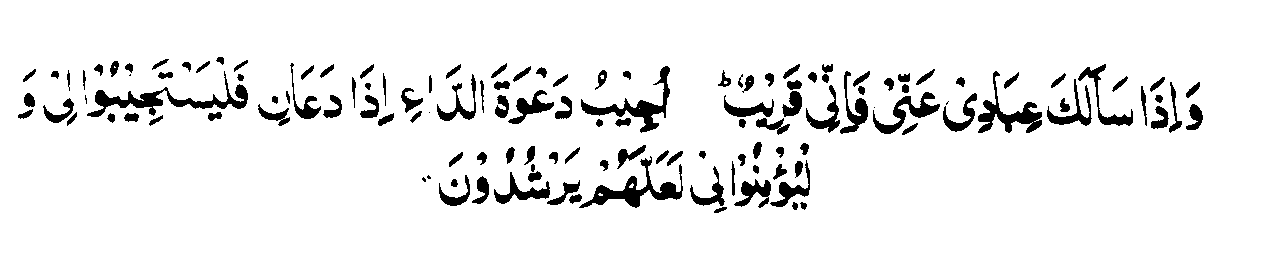 وَ اِذَا سَاَلَكَ عِبَادِیْ عَنِّیْ فَاِنِّیْ قَرِیْبٌ ؕ اُجِیْبُ دَعْوَةَ الدَّاعِ اِذَا دَعَانِ فَلْیَسْتَجِیْبُوْا لِیْ وَ
لْیُؤْمِنُوْا بِیْ لَعَلَّهُمْ یَرْشُدُوْنَ